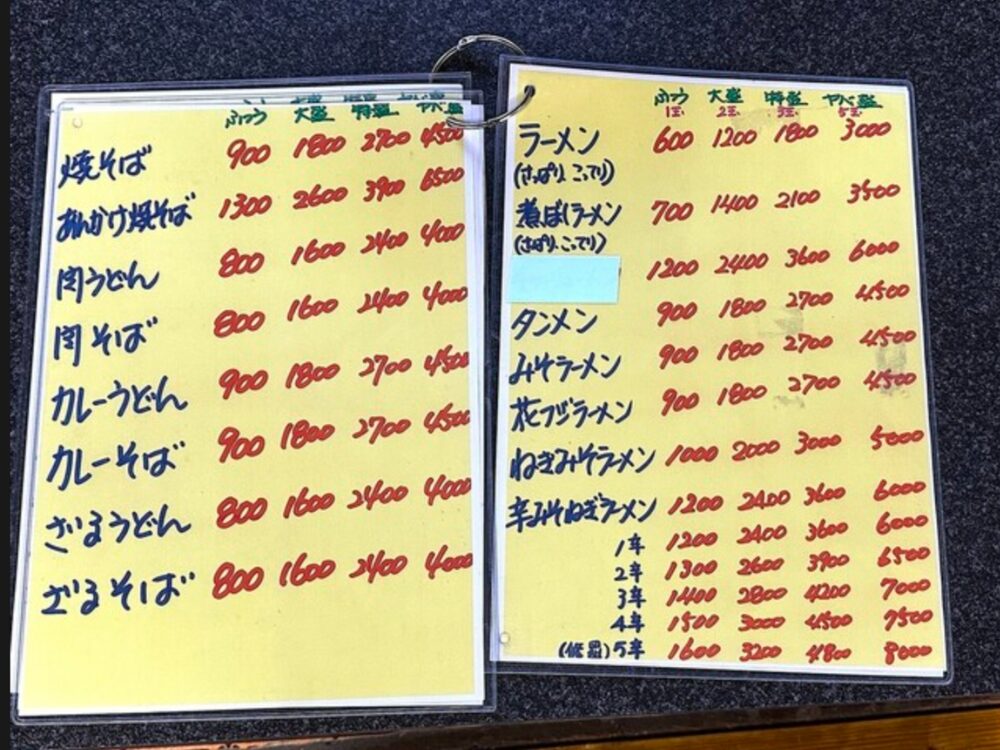 ふつう 大盛 特盛 ヤベ盛
焼そば 900 1800 2700 4500
あんかけ焼そば 1300 2600 3900 6500
肉うどん 800 1600 2400 4000
肉そば 800 1600 2400 4000
カレーうどん 900 1800 2700 4500
カレーそば 900 1800 2700 4500
ざるうどん 800 1600 2400 4000
ざるそば 800 1600 2400 4000
ふつう 大盛 特盛 ヤベ盛
1玉 2玉 3玉 5玉
ラーメン 600 1200 1800 3000
(さっぱり、こってり)
煮ぼしラーメン 700 1400 2100 3500
(さっぱり、こってり)
1200 2400 3600 6000
タンメン 900 1800 2700 4500
みそラーメン 900 1800 2700 4500
花フジラーメン 900 1800 2700 4500
ねぎみそラーメン 1000 2000 3000 5000
辛みそねぎラーメン 1200 2400 3600 6000
1辛 1200 2400 3600 6000
2辛 1300 2600 3900 6500
3辛 1400 2800 4200 7000
4辛 1500 3000 4500 7500
(修羅)5辛 1600 3200 4800 8000